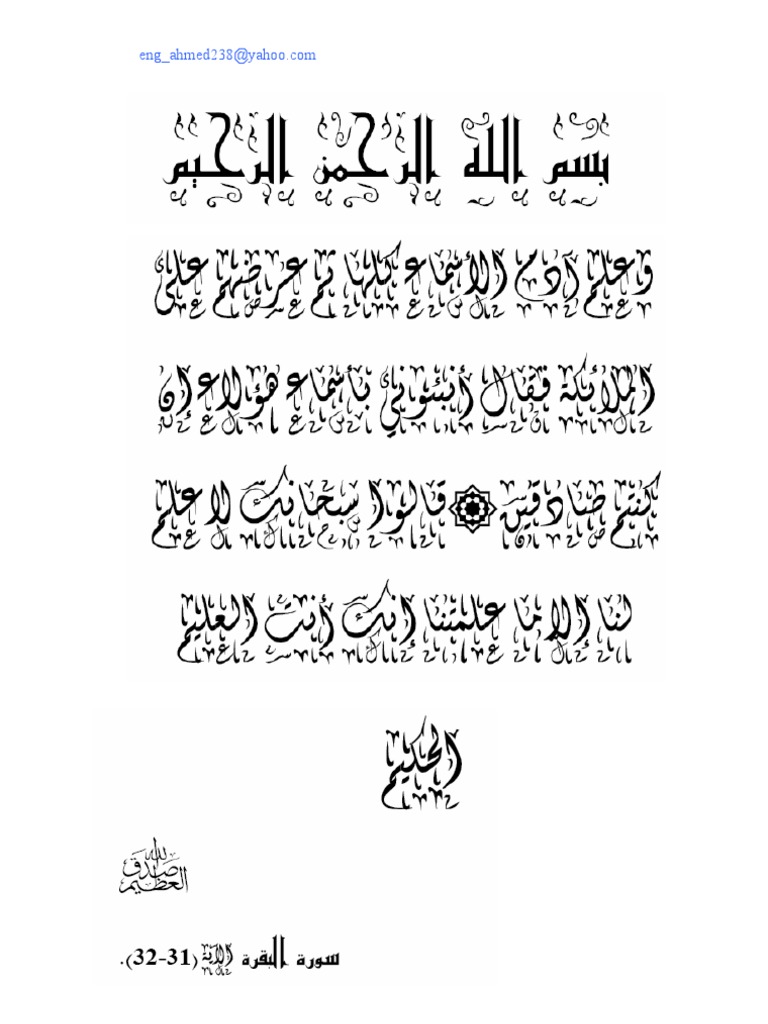 eng_ahmed238@yahoo.com
بسم الله الرحمن الرحيم
وعلم آدم الأسماء كلها ثم عرضهم على
الملائكة فقال أنبئوني بأسماء هؤلاء إن
كنتم صادقين ۞ قالوا سبحانك لا علم
لنا إلا ما علمتنا إنك أنت العليم
الحكيم
صدق الله العظيم
سورة البقرة الآية (31-32).